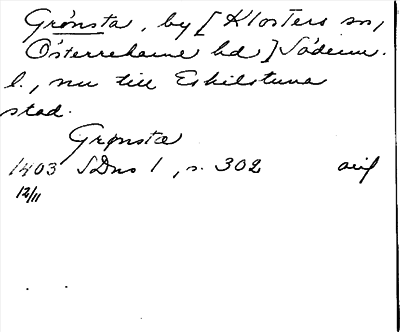 Grönsta, by [Klosters sn,
Österrekarne hd] Söderm.
l., nu till Eskilstuna
stad.
Grønstæ
1403 SDns 1, s. 302 avif
12/11